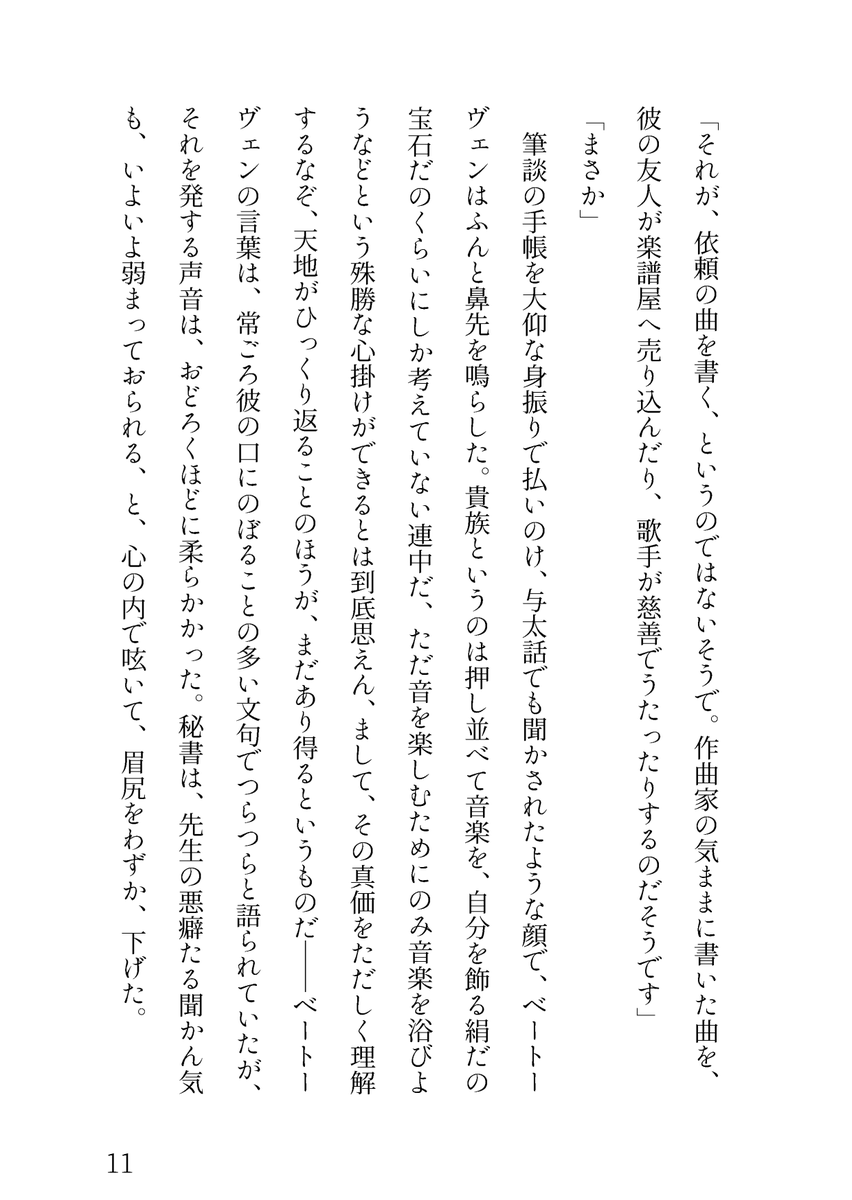 「それが、依頼の曲を書く、というのではないそうで。作曲家の気ままに書いた曲を、
彼の友人が楽譜屋へ売り込んだり、歌手が慈善でうたったりするのだそうです」
「まさか」
　筆談の手帳を大仰な身振りで払いのけ、与太話でも聞かされたような顔で、ベートー
ヴェンはふんと鼻先を鳴らした。貴族というのは押し並べて音楽を、自分を飾る絹だの
宝石だのくらいにしか考えていない連中だ、ただ音を楽しむためにのみ音楽を浴びよ
うなどという殊勝な心掛けができるとは到底思えん、まして、その真価をただしく理解
するなぞ、天地がひっくり返ることのほうが、まだあり得るというものだ――ベートー
ヴェンの言葉は、常ごろ彼の口にのぼることの多い文句でつらつらと語られていたが、
それを発する声音は、おどろくほどに柔らかかった。秘書は、先生の悪癖たる聞かん気
も、いよいよ弱まっておられる、と、心の内で呟いて、眉尻をわずか、下げた。
11